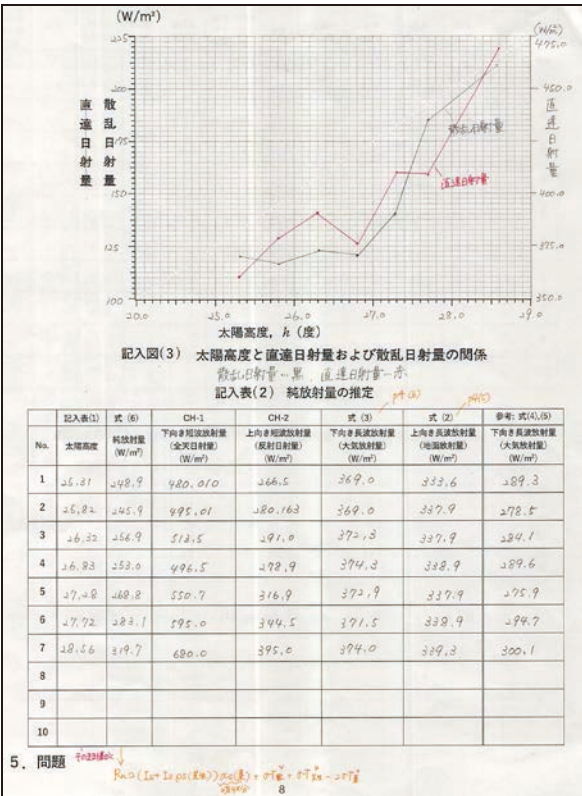 (W/m²)
(W/m²)
225
475.0
200
450.0
散乱日射量
直達日射量
175
直達日射量
散乱日射量
直達日射量
150
400.0
125
375.0
100
350.0
20.0 25.0 26.0 27.0 28.0 29.0
太陽高度, h (度)
記入図(3) 太陽高度と直達日射量および散乱日射量の関係
散乱日射量-黒, 直達日射量-赤
記入表(2) 純放射量の推定
記入表(1) 式 (6) CH-1 CH-2 式 (3) 式 (2) 参考: 式(4),(5)
No. 太陽高度 純放射量 (W/m²) 下向き短波放射量 (全天日射量) (W/m²) 上向き短波放射量 (反射日射量) (W/m²) 下向き長波放射量 (大気放射量) (W/m²) 上向き長波放射量 (地面放射量) (W/m²) 下向き長波放射量 (大気放射量) (W/m²)
1 25.31 248.9 480.010 266.5 369.0 333.6 289.3
2 25.82 245.9 495.01 280.163 369.0 337.9 278.5
3 26.32 256.9 513.5 291.0 372.3 337.9 284.1
4 26.83 253.0 496.5 278.9 374.3 338.9 289.6
5 27.28 268.8 550.7 316.9 372.9 337.9 275.9
6 27.72 283.1 595.0 344.5 371.5 338.9 294.7
7 28.56 319.7 680.0 395.0 374.0 339.3 300.1
8
9
10
5. 問題
8